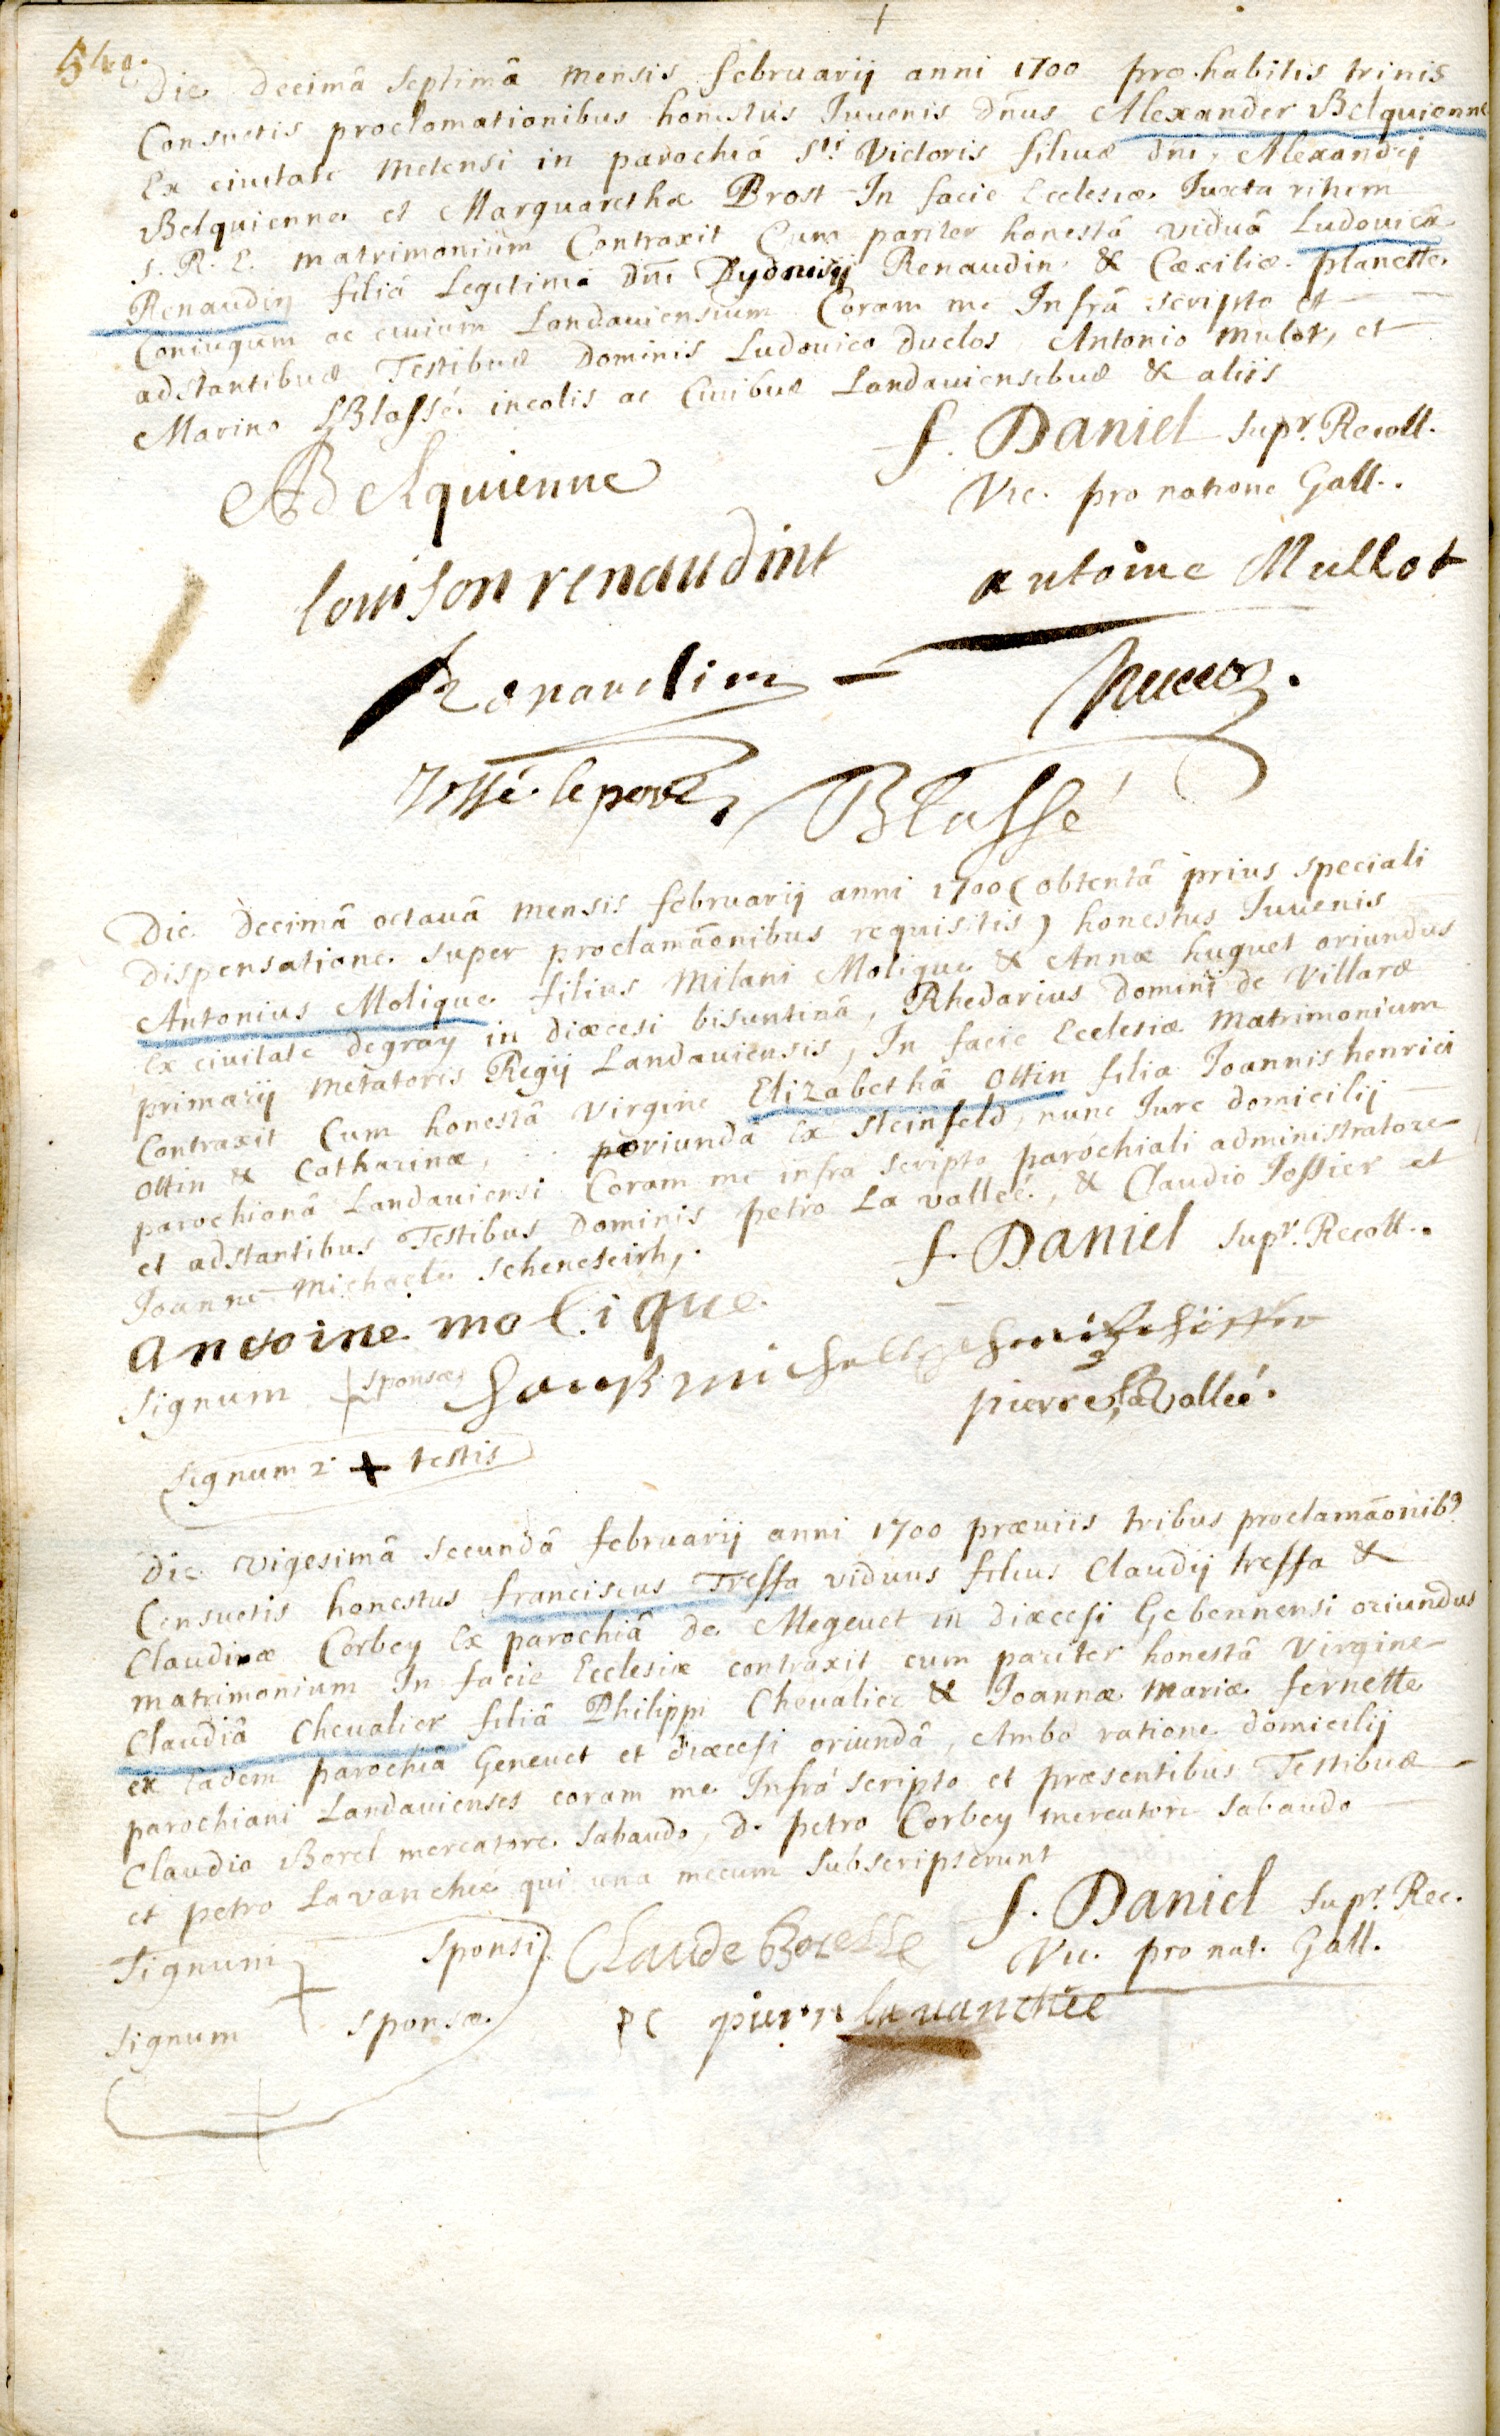 Die decimâ septimâ mensis februarij anni 1700 præhabitis trinis
Consuetis proclamationibus honestus Iuuenis Dñus Alexander Belquienne
Ex ciuitate Metensi in parochiâ Sti Victoris filius dni, Alexandri
Belquienne et Marguarethæ Brost In facie Ecclesiæ Iuxta ritum
S. R. E. matrimonium Contraxit Cum pariter honestâ viduâ Ludouicâ
Renaudin filiâ Legitimâ Dni Dyonisij Renaudin & Cæciliæ planette
Coniugum ac ciuium Landauiensium Coram me Infrâ scripto et
adstantibus Testibus Dominis Ludouico duclos, Antonio mulot, et
Marino Blassé incolis ac Ciuibus Landauiensibus & aliis
f. Daniel Supr. Recoll.
Vic. pro natione Gall.
ABelquienne
louison renaudint
antoine Mullot
Renaudin
Blassé
Die Decimâ octauâ mensis februarij anni 1700 (obtentâ prius speciali
dispensatione super proclamaõnibus requisitis) honestus Iuuenis
Antonius Molique filius Milani Molique & Annæ huguet oriundus
Ex ciuitate degray in diœcesi bisuntinâ, Rhedarius Domini de Villaræ
primarij metatoris Regij Landauiensis, In facie Ecclesiæ Matrimonium
Contraxit Cum honestâ Virgine Elizabethâ Ottin filia Ioannis henrici
Ottin & Catharinæ, oriunda Ex Steinfeld, nunc Iure domicilij
parochianâ Landauiensi Coram me infra scripto parochiali administratore
et adstantibus Testibus Dominis petro La valleé, & Claudio Jossier et
Ioanne Michaele
f. Daniel Supr. Recoll.
antoine molique
Signum + sponsæ
pierre la Valleé.
Signum 2i + testis
Die Vigesimâ secundâ februarij anni 1700 præuiis tribus proclamaõnib9
Consuetis honestus franciscus Tressa viduus filius Claudij tressa &
Claudinæ Corbey Ex parochiâ de Megeuet in diœcesi Gebennensi oriundus
matrimonium In facie Ecclesiæ contraxit cum pariter honestâ Virgine
Claudiâ Cheualier filiâ Philippi Cheualier & Ioannæ Mariæ fernette
ex Eadem parochiâ Geneuet et diœcesi oriundâ, Ambo ratione domicilij
parochiani Landauienses coram me Infrâ scripto et præsentibus Testibus
Claudio Borel mercatore Sabaudo, D. petro Corbey mercatore Sabaudo
et petro Lavanchée qui una mecum subscripserunt
f. Daniel Supr. Rec.
Vic. pro nat. Gall.
Signum + sponsi
Claude Borelle
Signum + sponsæ
PC pierre lavanchée